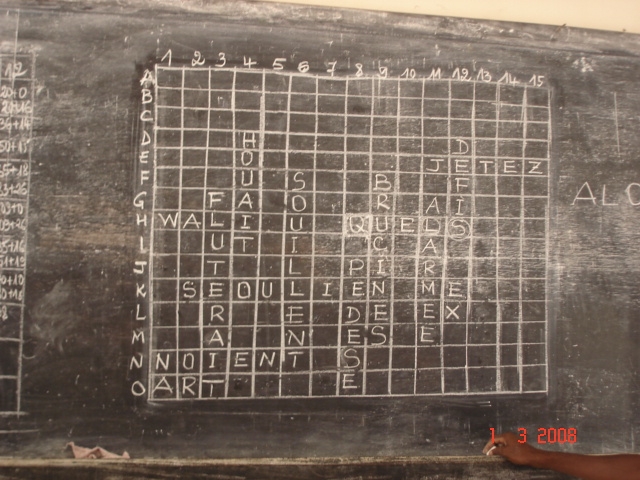 1 2 3 4 5 6 7 8 9 10 11 12 13 14 15
A
B
C
D H D
E O J E T E Z
F U S F B I
G F A O R A I
H W A L I U Q U E L S
I U T I C A
J T L P I R
K S E O U L I E N M E
L R E D E E X
M A N E S E
N N O I E N T S
O A R T E
ALO
1 3 2008